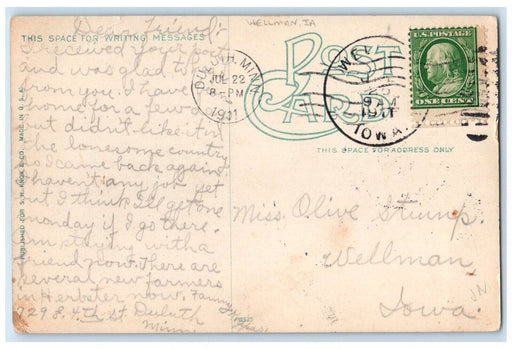 WELLMAN, IA
Dear Friend:
THIS SPACE FOR WRITING MESSAGES
I received your card
and was glad to hear
from you. I have been
home for a few days
but didn't like it in
the lonesome country
so I came back again.
I haven't any job yet
but I think I'll get one
monday if I go there.
am staying with a
friend now. There are
several new farmers
in Herbster now. Fanny
929 E. 4th St. Duluth
Minn.
PUBLISHED FOR S. H. KNOX & CO. MADE IN U. S. A.
DULUTH, MINN.
JUL 22
8-PM
1911
POST CARD
WEL
9 AM
1911
IOWA
U.S. POSTAGE
ONE CENT
THIS SPACE FOR ADDRESS ONLY
Miss Olive Stump.
Wellman
Iowa.